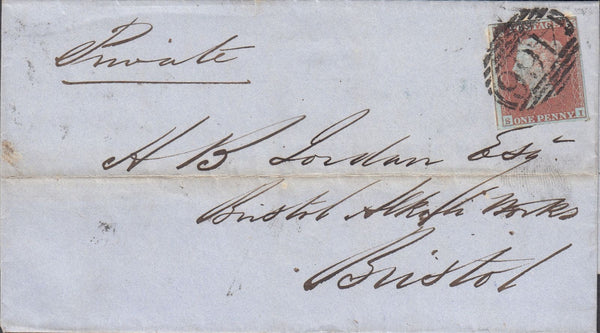 Private
POSTAGE
S ONE PENNY I
H B Jordan Esqr
Bristol Alkali Works
Bristol